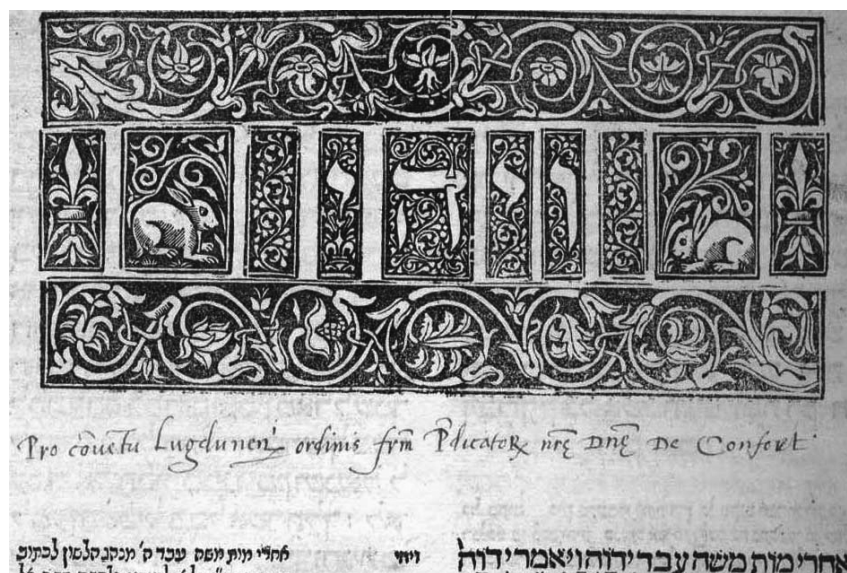 ויהי
Pro cōvētu Lugdunen̄ ordinis frm̄ P̄dicatoꝝ nrę̄ Dnę̄ De Confort
אחרי מות משה עבד ידוה ויאמר ידוה
ויהי אחרי מות משה עבד ה' מנהג הלשון לכתוב